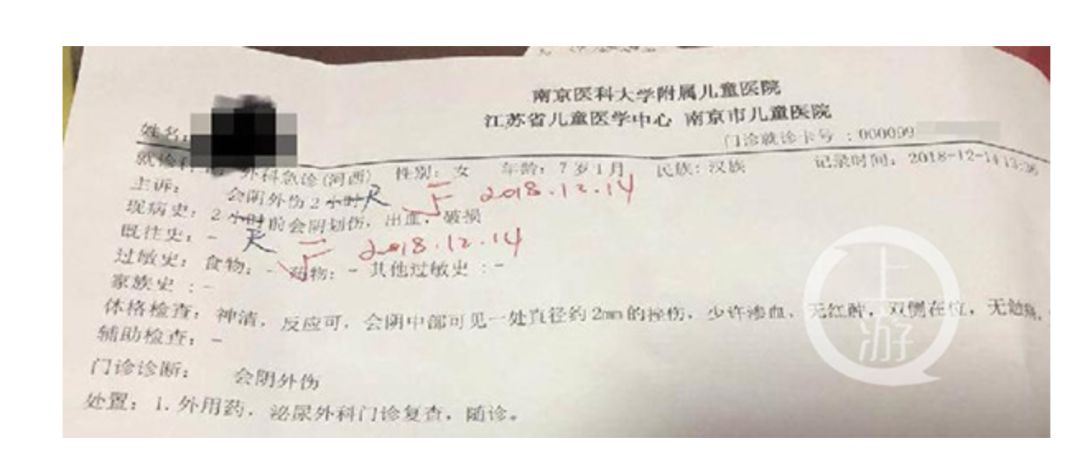 南京医科大学附属儿童医院
江苏省儿童医学中心 南京市儿童医院
姓名:
门诊就诊卡号 :000099
就诊科 外科急诊(河西) 性别: 女 年龄: 7岁1月 民族: 汉族 记录时间: 2018-12-14
主诉: 会阴外伤2小时天 2018.12.14
现病史: 2小时前会阴划伤, 出血, 破损
天 2018.12.14
既往史: -
过敏史: 食物: - 药物: - 其他过敏史 :-
家族史 :-
体格检查: 神清, 反应可, 会阴中部可见一处直径约2mm的挫伤, 少许渗血, 无红肿, 双侧在位, 无
辅助检查: -
门诊诊断: 会阴外伤
处置: 1. 外用药, 泌尿外科门诊复查, 随诊。
上游